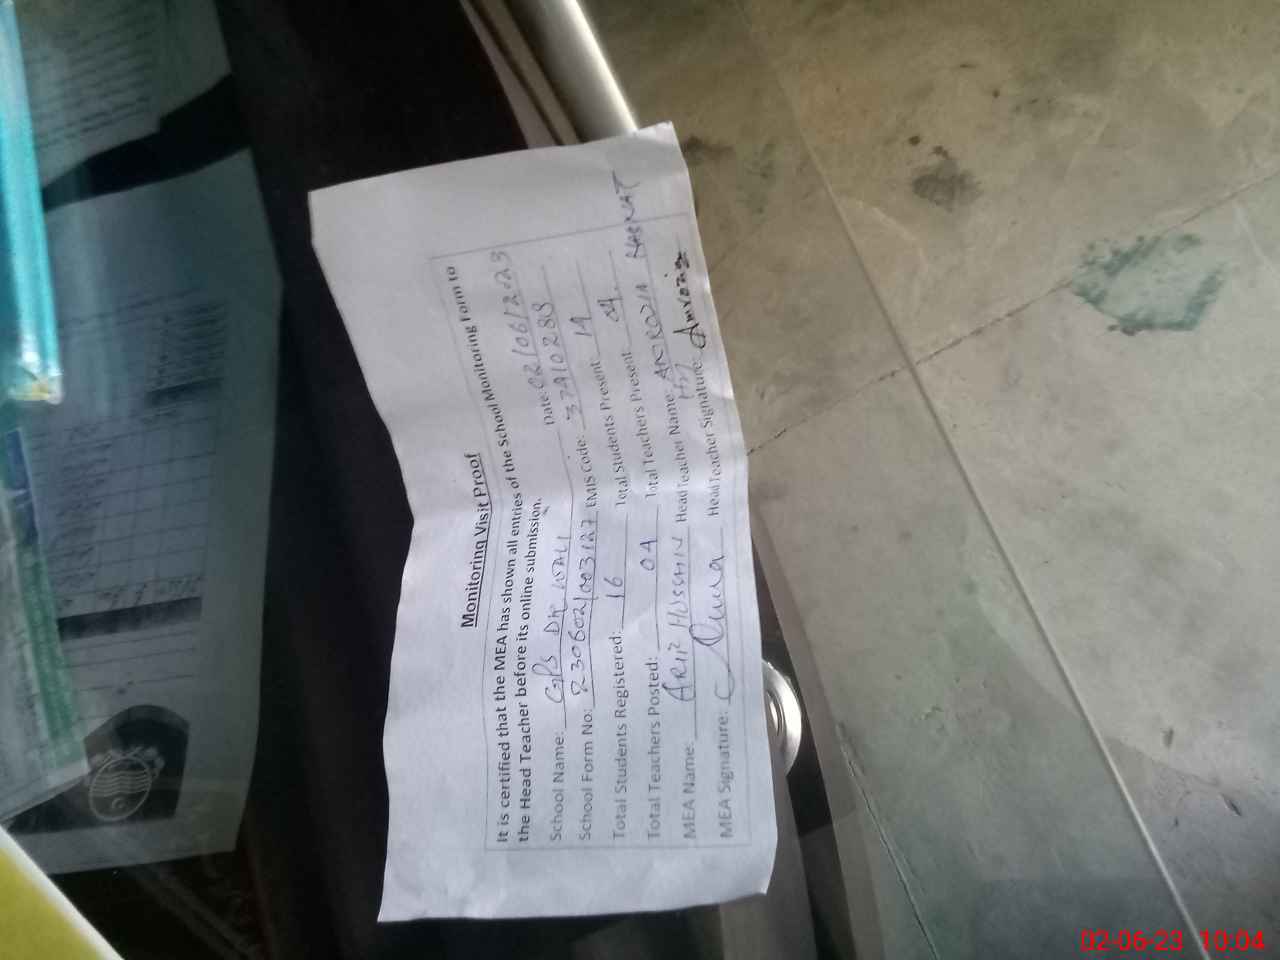 Monitoring Visit Proof
It is certified that the MEA has shown all entries of the School Monitoring Form to
the Head Teacher before its online submission.
School Name: GPS DK WALI Date: 02/06/2023
School Form No: 2306021003127 EMIS Code: 37410288
Total Students Registered: 16 Total Students Present: 14
Total Teachers Posted: 04 Total Teachers Present: 04
MEA Name: ARIF HUSSAIN Head Teacher Name:
MEA Signature: Head Teacher Signature:
02-06-23 10:04